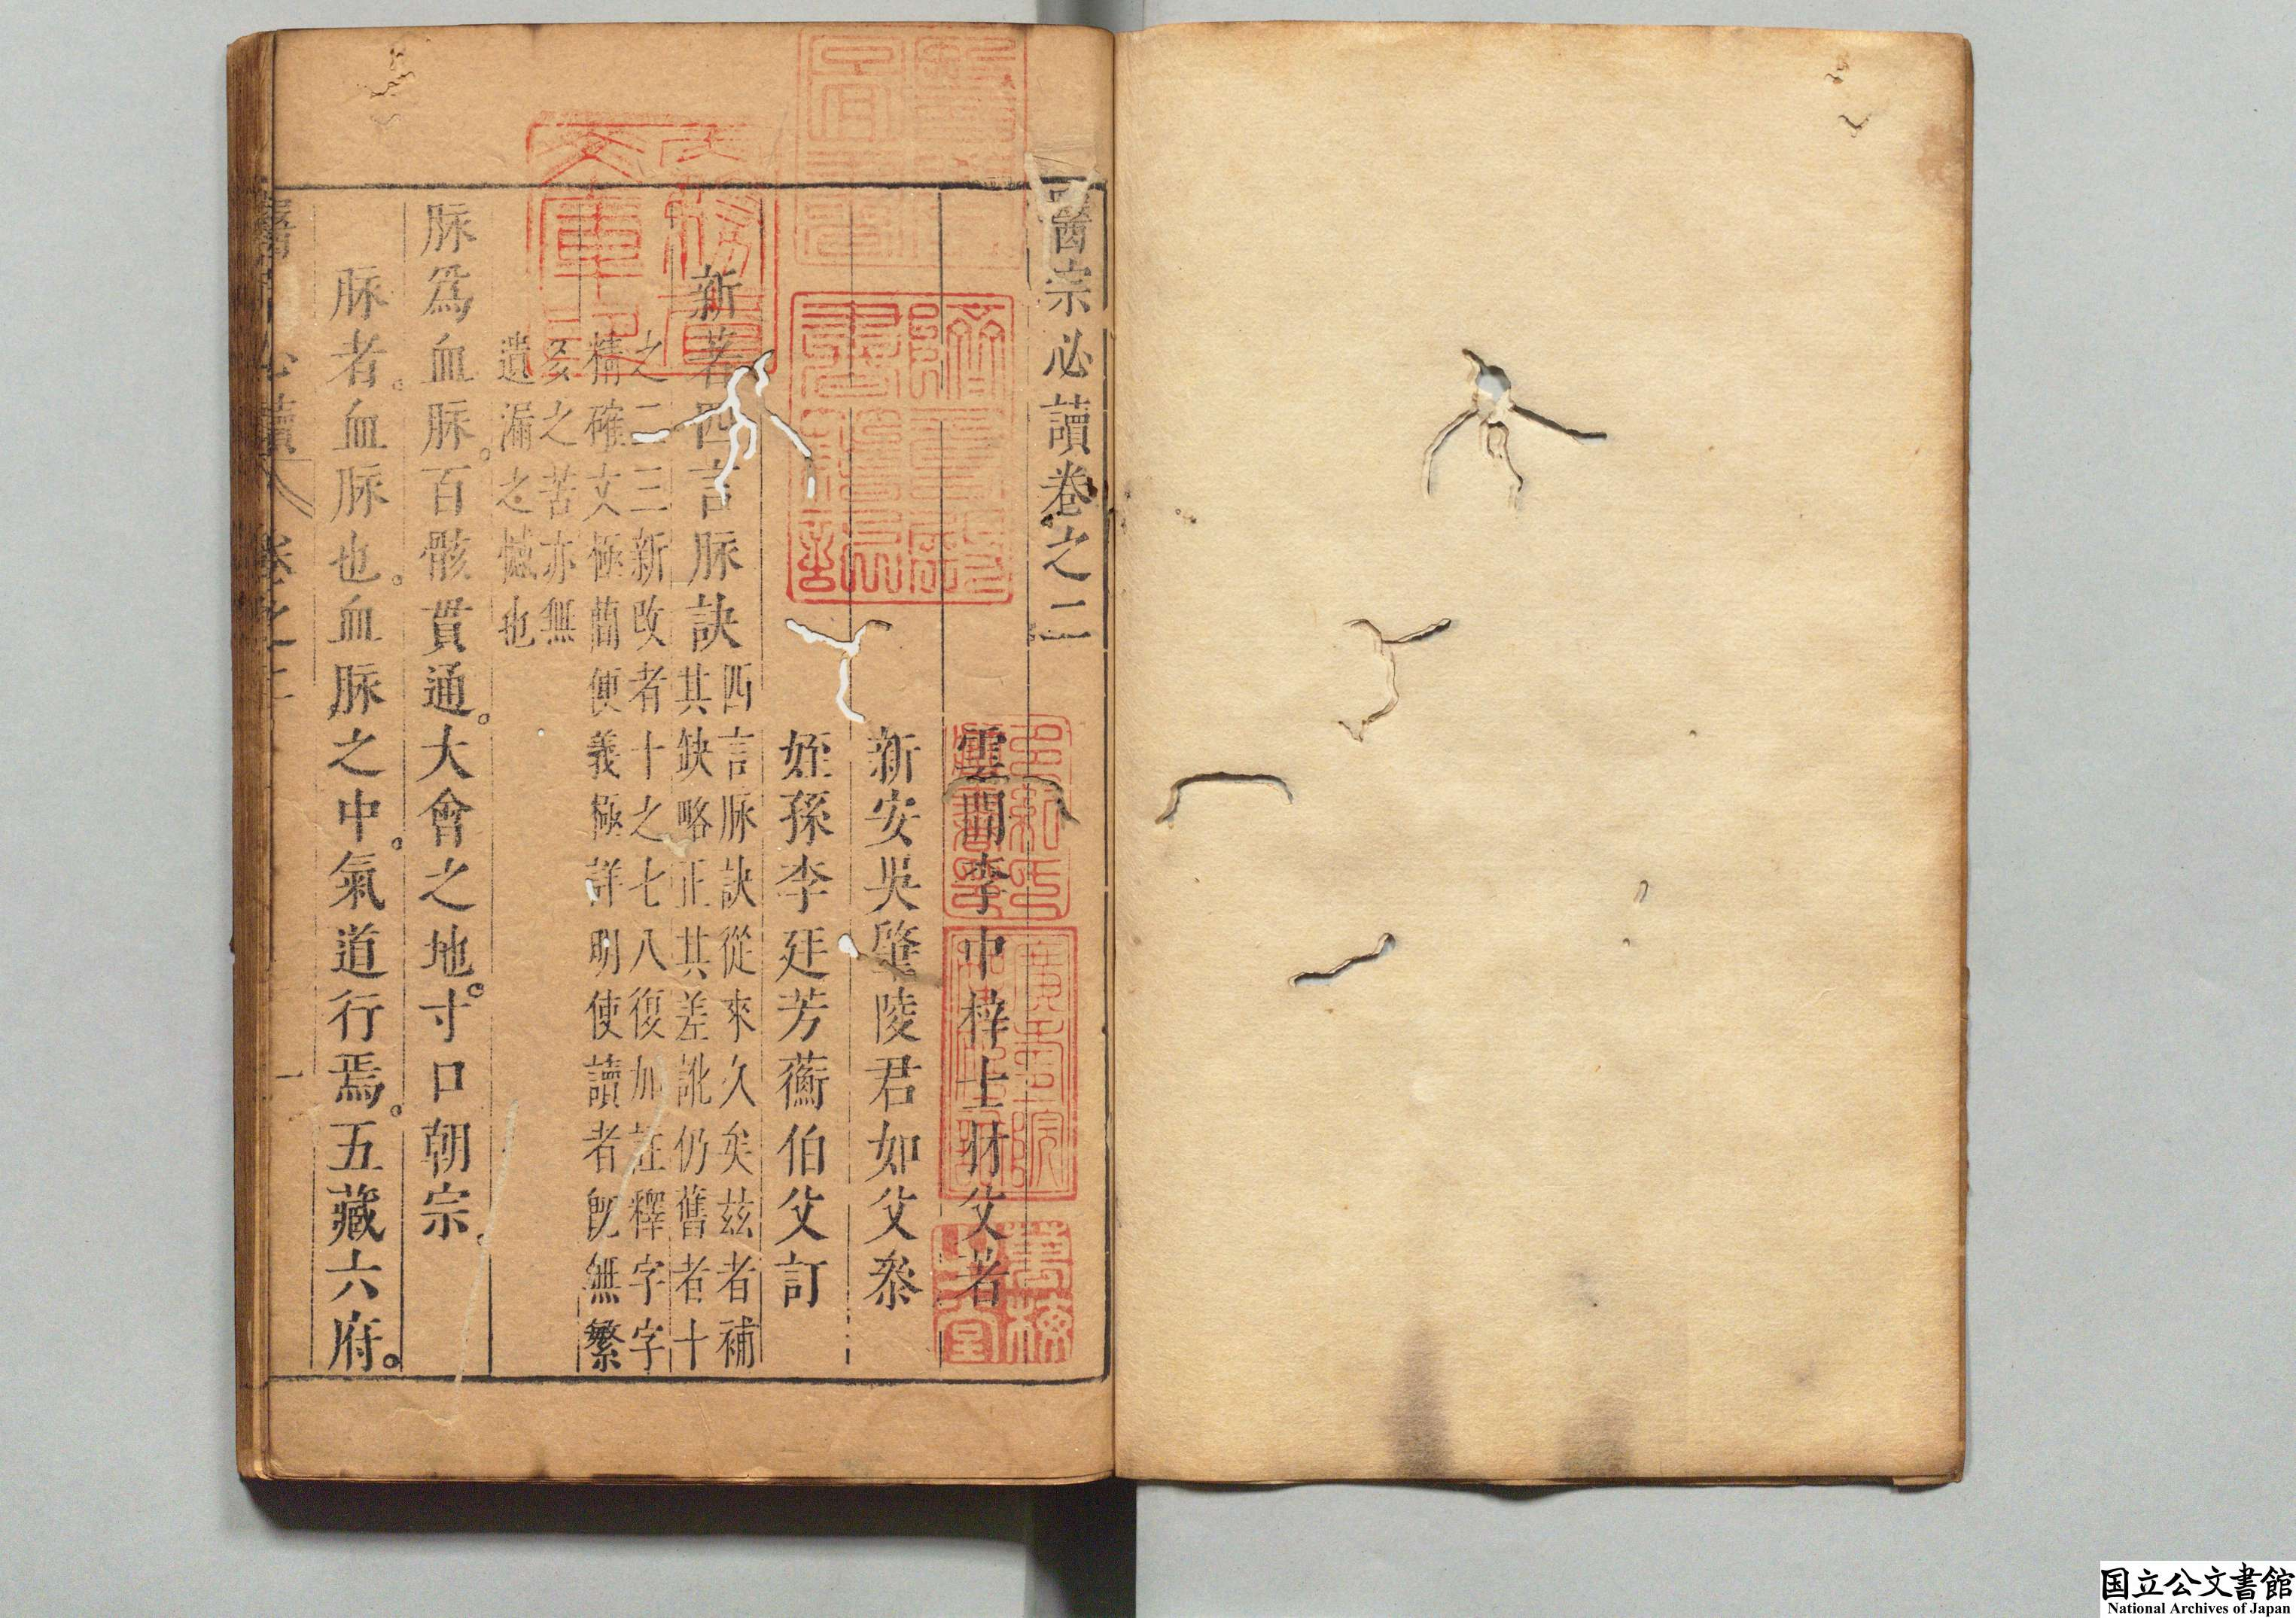 醫宗必讀卷之二
雲間李中梓士材父著
新安吳肇陵君如父叅
姪孫李廷芳蘅伯父訂
新著四言脉訣
四言脉訣從來久矣兹者補
其缺略正其差訛仍舊者十
之二三新改者十之七八復加註釋字字
精確文極簡便義極詳明使讀者旣無繁
多之苦亦無
遺漏之憾也
脉爲血脉。百骸貫通。大會之地。寸口朝宗。
脉者。血脉也。血脉之中。氣道行焉。五藏六府。
国立公文書館
National Archives of Japan